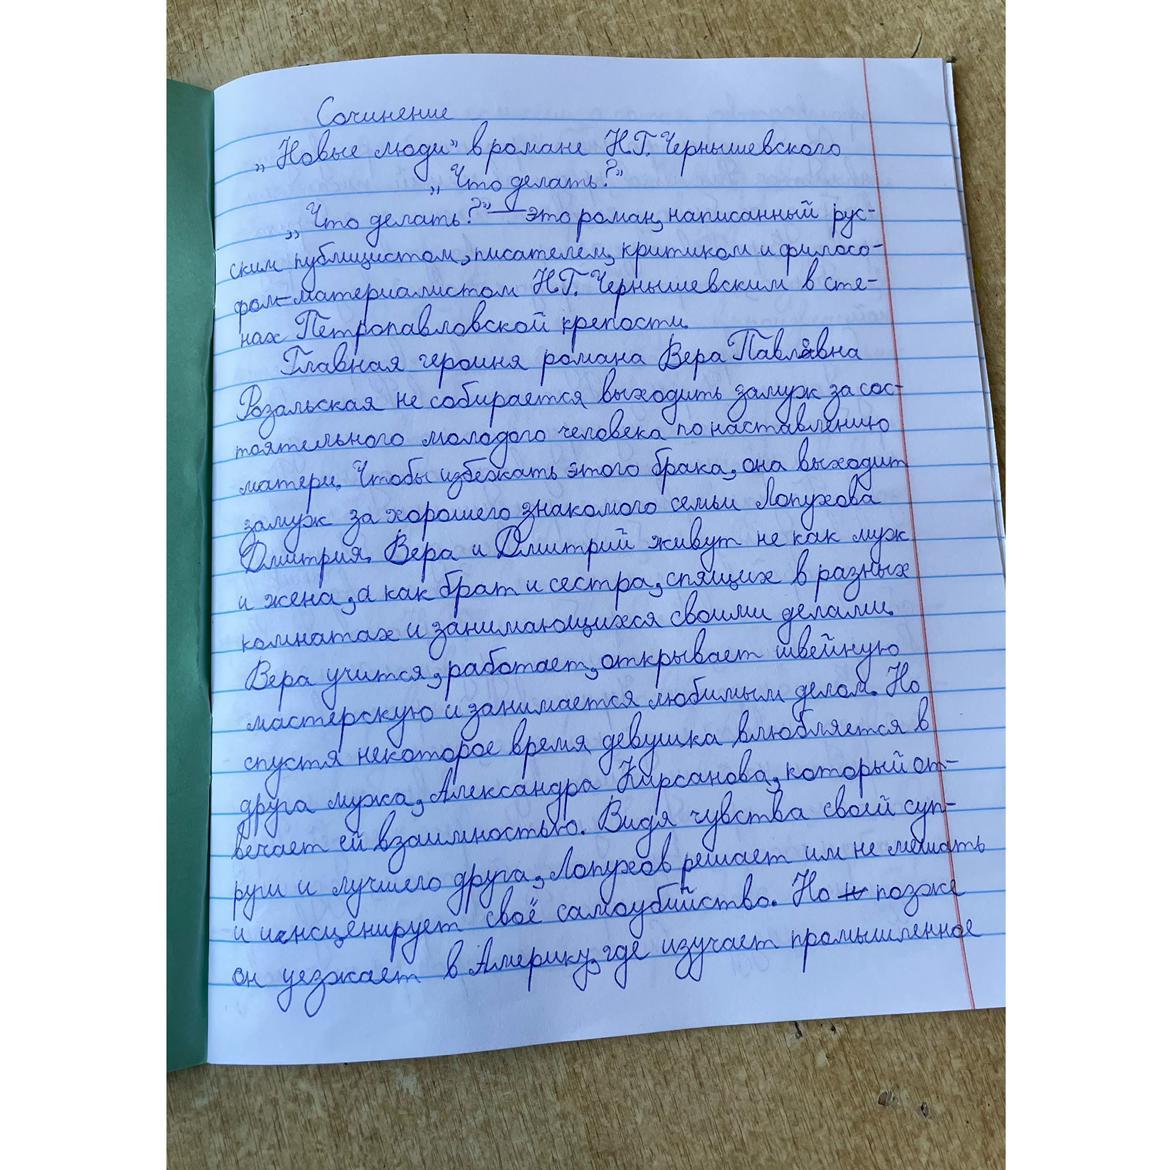 Сочинение
„Новые люди" в романе Н.Г. Чернышевского
„Что делать?"
„Что делать?" — это роман, написанный рус-
ским публицистом, писателем, критиком и филосо-
фом-материалистом Н.Г. Чернышевским в сте-
нах Петропавловской крепости.
Главная героиня романа Вера Павловна
Розальская не собирается выходить замуж за сос-
тоятельного молодого человека по наставлению
матери. Чтобы избежать этого брака, она выходит
замуж за хорошего знакомого семьи Лопухова
Дмитрия. Вера и Дмитрий живут не как муж
и жена, а как брат и сестра, спящих в разных
комнатах и занимающихся своими делами.
Вера учится, работает, открывает швейную
мастерскую и занимается любимым делом. Но
спустя некоторое время девушка влюбляется в
друга мужа, Александра Кирсанова, который от-
вечает ей взаимностью. Видя чувства своей суп-
руги и лучшего друга, Лопухов решает им не мешать
и инсценирует своё самоубийство. Но позже
он уезжает в Америку, где изучает промышленное